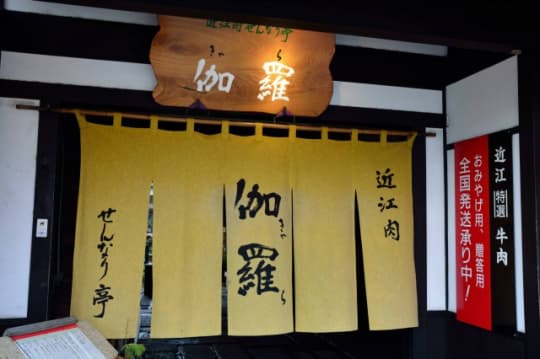 近江肉せんなり亭
きゃ ら
伽羅
近江肉
伽羅
きゃ ら
せんなり亭
近江特選牛肉
おみやげ用、贈答用
全国発送承り中!